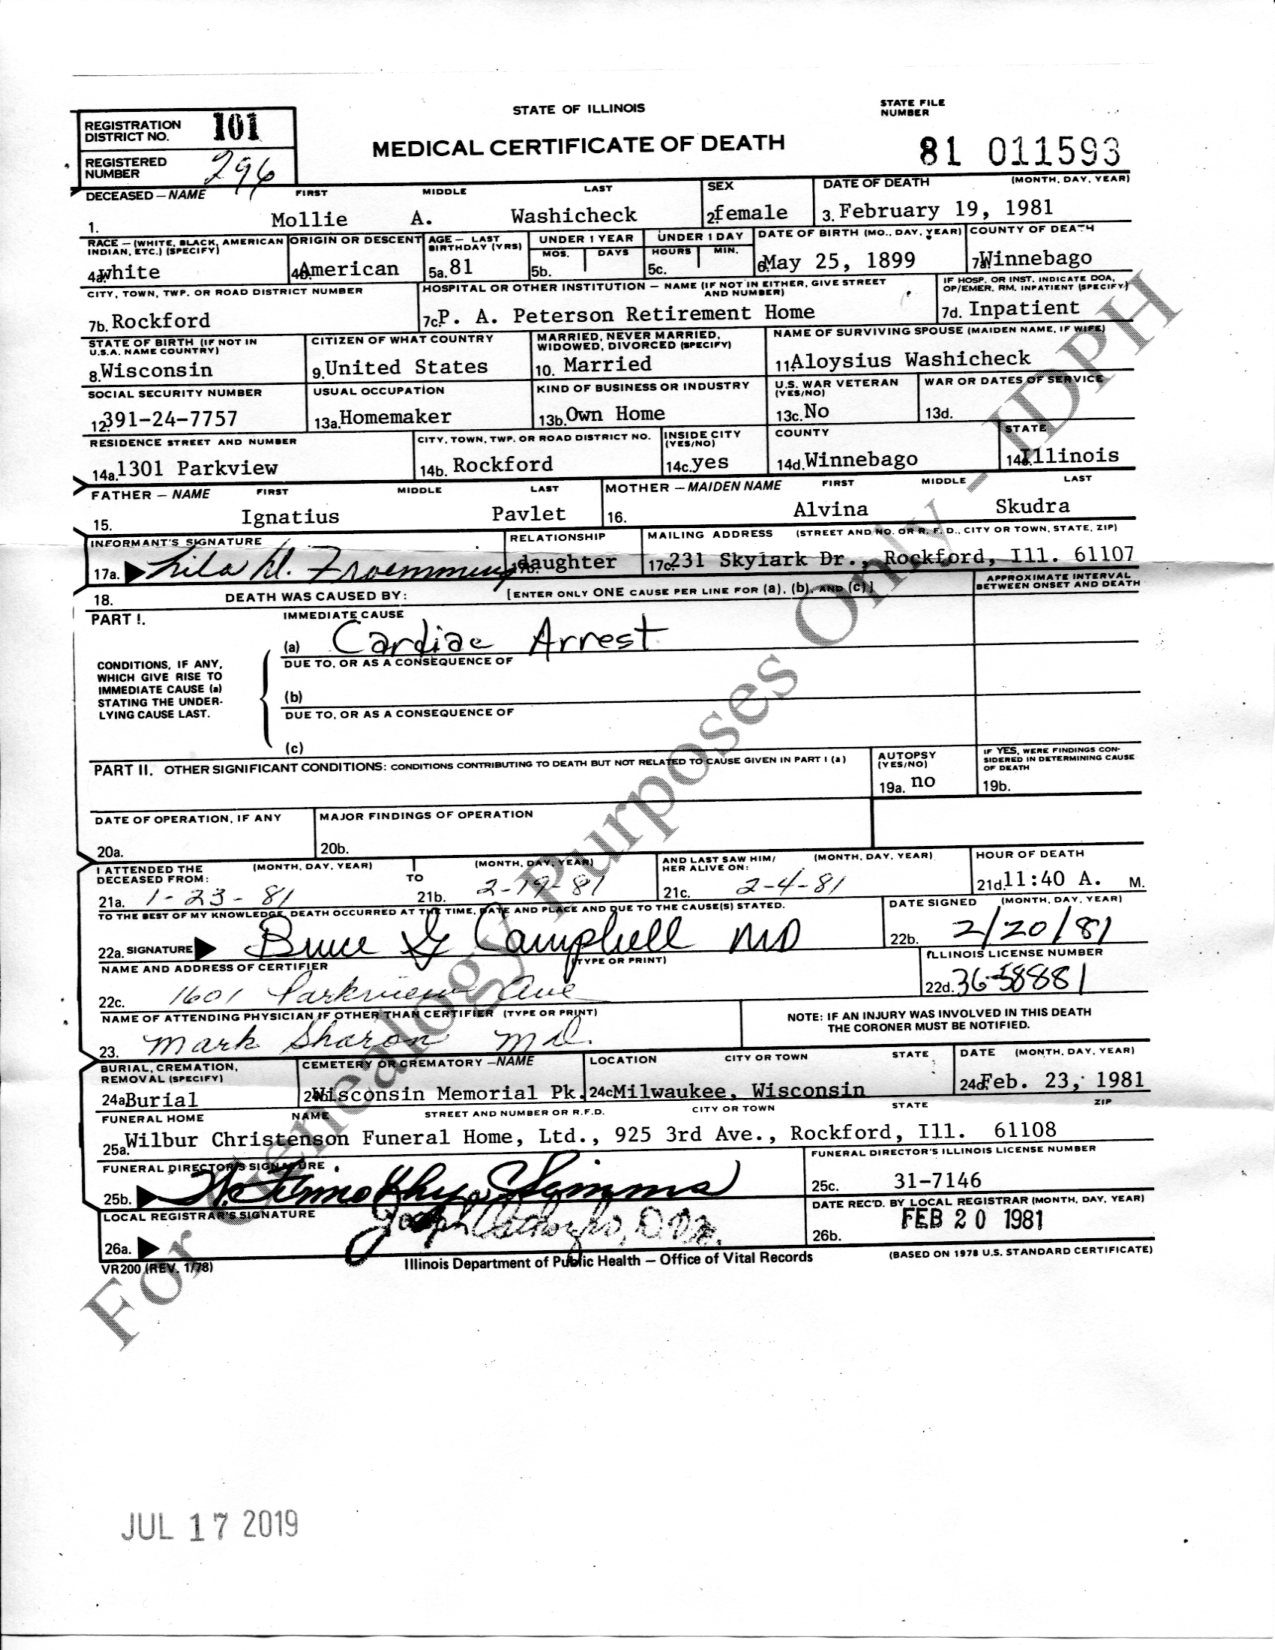 STATE OF ILLINOIS
STATE FILE NUMBER
REGISTRATION DISTRICT NO. 101
MEDICAL CERTIFICATE OF DEATH
81 011593
REGISTERED NUMBER 296
DECEASED — NAME FIRST MIDDLE LAST SEX DATE OF DEATH (MONTH, DAY, YEAR)
1. Mollie A. Washicheck 2. female 3. February 19, 1981
RACE — (WHITE, BLACK, AMERICAN INDIAN, ETC.) (SPECIFY) ORIGIN OR DESCENT AGE — LAST BIRTHDAY (YRS) UNDER 1 YEAR MOS. DAYS UNDER 1 DAY HOURS MIN. DATE OF BIRTH (MO., DAY, YEAR) COUNTY OF DEATH
4a. white 4b. American 5a. 81 5b. 5c. 6. May 25, 1899 7a. Winnebago
CITY, TOWN, TWP. OR ROAD DISTRICT NUMBER HOSPITAL OR OTHER INSTITUTION — NAME (IF NOT IN EITHER, GIVE STREET AND NUMBER) IF HOSP. OR INST. INDICATE DOA, OP/EMER. RM. INPATIENT (SPECIFY)
7b. Rockford 7c. P. A. Peterson Retirement Home 7d. Inpatient
STATE OF BIRTH (IF NOT IN U.S.A. NAME COUNTRY) CITIZEN OF WHAT COUNTRY MARRIED, NEVER MARRIED, WIDOWED, DIVORCED (SPECIFY) NAME OF SURVIVING SPOUSE (MAIDEN NAME, IF WIFE)
8. Wisconsin 9. United States 10. Married 11. Aloysius Washicheck
SOCIAL SECURITY NUMBER USUAL OCCUPATION KIND OF BUSINESS OR INDUSTRY U.S. WAR VETERAN (YES/NO) WAR OR DATES OF SERVICE
12. 391-24-7757 13a. Homemaker 13b. Own Home 13c. No 13d.
RESIDENCE STREET AND NUMBER CITY, TOWN, TWP. OR ROAD DISTRICT NO. INSIDE CITY (YES/NO) COUNTY STATE
14a. 1301 Parkview 14b. Rockford 14c. yes 14d. Winnebago 14e. Illinois
FATHER — NAME FIRST MIDDLE LAST MOTHER — MAIDEN NAME FIRST MIDDLE LAST
15. Ignatius Pavlet 16. Alvina Skudra
INFORMANT'S SIGNATURE RELATIONSHIP MAILING ADDRESS (STREET AND NO. OR R. F. D., CITY OR TOWN, STATE, ZIP)
17a. Lila M. Froemming 17b. daughter 17c. 231 Skylark Dr., Rockford, Ill. 61107
18. DEATH WAS CAUSED BY: [ENTER ONLY ONE CAUSE PER LINE FOR (a), (b), AND (c)] APPROXIMATE INTERVAL BETWEEN ONSET AND DEATH
PART I. IMMEDIATE CAUSE
(a) Cardiac Arrest
CONDITIONS, IF ANY, WHICH GIVE RISE TO IMMEDIATE CAUSE (a) STATING THE UNDERLYING CAUSE LAST.
DUE TO, OR AS A CONSEQUENCE OF
(b)
DUE TO, OR AS A CONSEQUENCE OF
(c)
PART II. OTHER SIGNIFICANT CONDITIONS: CONDITIONS CONTRIBUTING TO DEATH BUT NOT RELATED TO CAUSE GIVEN IN PART I (a) AUTOPSY (YES/NO) IF YES, WERE FINDINGS CONSIDERED IN DETERMINING CAUSE OF DEATH
19a. no 19b.
DATE OF OPERATION, IF ANY MAJOR FINDINGS OF OPERATION
20a. 20b.
I ATTENDED THE DECEASED FROM: (MONTH, DAY, YEAR) TO (MONTH, DAY, YEAR) AND LAST SAW HIM/HER ALIVE ON: (MONTH, DAY, YEAR) HOUR OF DEATH
21a. 1-23-81 21b. 2-19-81 21c. 2-4-81 21d. 11:40 A. M.
TO THE BEST OF MY KNOWLEDGE, DEATH OCCURRED AT THE TIME, DATE AND PLACE AND DUE TO THE CAUSE(S) STATED. DATE SIGNED (MONTH, DAY, YEAR)
22a. SIGNATURE Bruce G Campbell MD 22b. 2/20/81
NAME AND ADDRESS OF CERTIFIER (TYPE OR PRINT) ILLINOIS LICENSE NUMBER
22c. 1601 Parkview Ave 22d. 36-58881
NAME OF ATTENDING PHYSICIAN IF OTHER THAN CERTIFIER (TYPE OR PRINT) NOTE: IF AN INJURY WAS INVOLVED IN THIS DEATH THE CORONER MUST BE NOTIFIED.
23. Mark Sharon M.D.
BURIAL, CREMATION, REMOVAL (SPECIFY) CEMETERY OR CREMATORY — NAME LOCATION CITY OR TOWN STATE DATE (MONTH, DAY, YEAR)
24a. Burial 24b. Wisconsin Memorial Pk. 24c. Milwaukee, Wisconsin 24d. Feb. 23, 1981
FUNERAL HOME NAME STREET AND NUMBER OR R.F.D. CITY OR TOWN STATE ZIP
25a. Wilbur Christenson Funeral Home, Ltd., 925 3rd Ave., Rockford, Ill. 61108
FUNERAL DIRECTOR'S SIGNATURE FUNERAL DIRECTOR'S ILLINOIS LICENSE NUMBER
25b. W. Timothy Simms 25c. 31-7146
LOCAL REGISTRAR'S SIGNATURE DATE REC'D. BY LOCAL REGISTRAR (MONTH, DAY, YEAR)
26a. Joseph 26b. FEB 20 1981
VR200 (REV. 1/78) Illinois Department of Public Health — Office of Vital Records (BASED ON 1978 U.S. STANDARD CERTIFICATE)
For Genealogy Purposes Only - IDPH
JUL 17 2019